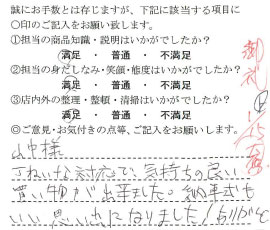 誠にお手数とは存じますが、下記に該当する項目に
〇印のご記入をお願い致します。
①担当の商品知識・説明はいかがでしたか?
満足 ・ 普通 ・ 不満足
②担当の身だしなみ・笑顔・態度はいかがでしたか?
満足 ・ 普通 ・ 不満足
③店内外の整理・整頓・清掃はいかがでしたか?
満足 ・ 普通 ・ 不満足
◎ご意見・お気付きの点等、ご記入をお願いします。
山中様
ていねいな対応で、気持ちの良い
買い物が出来ました。納車式も
いい思い出になりました!ありがとう
御礼